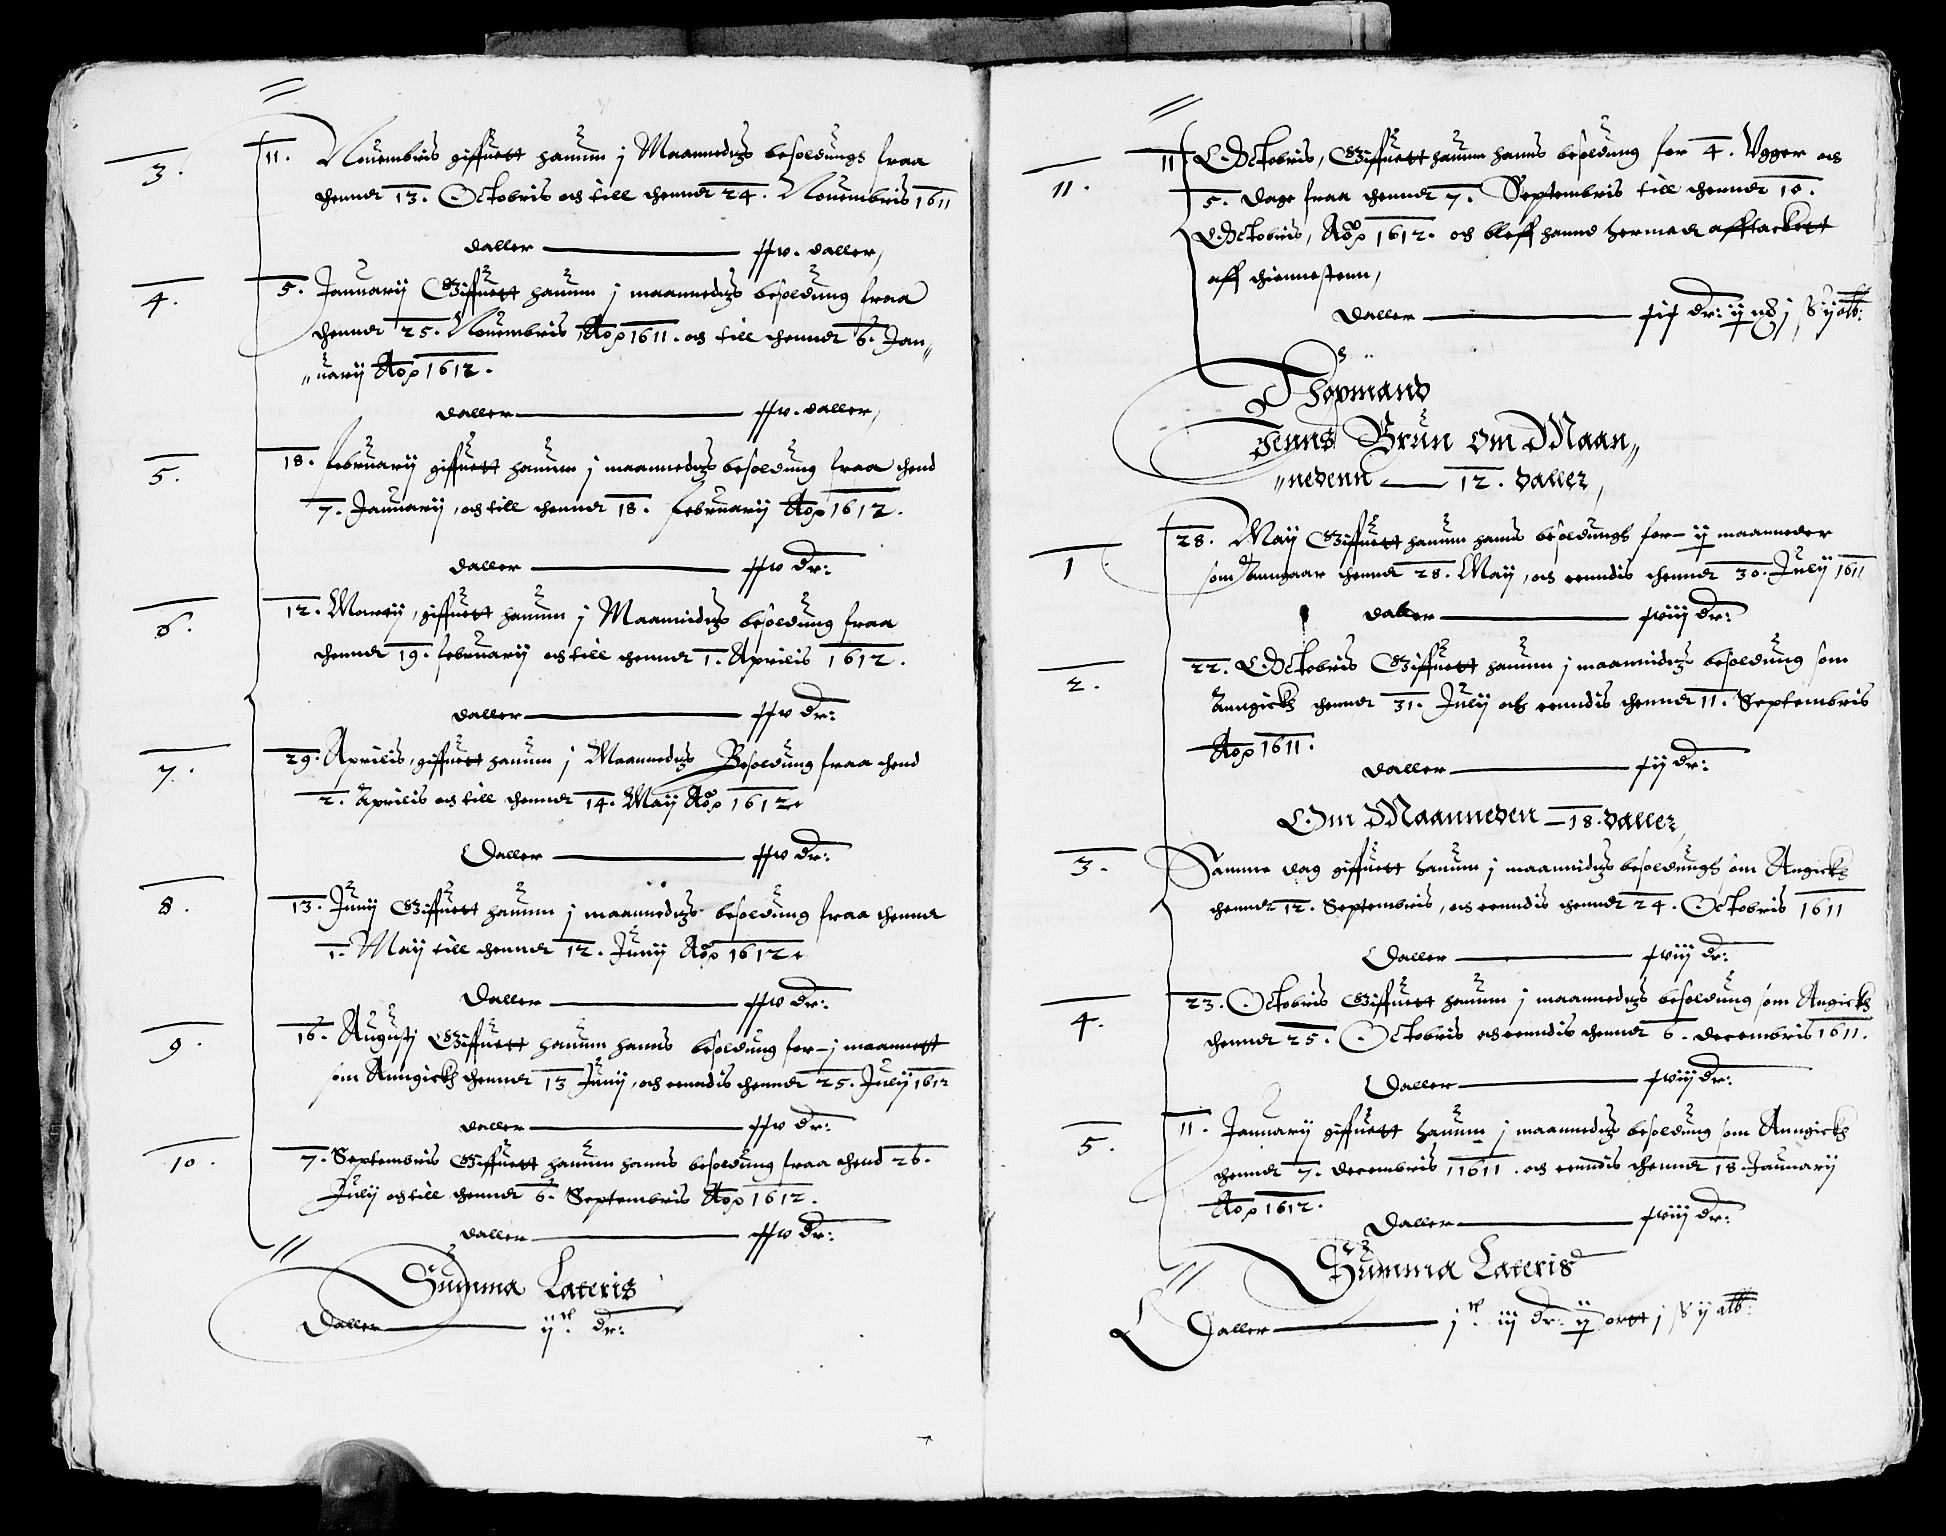 3.
11. Nouembris giffuett hanum j Maannedtz besoldungs fraa
thennd 13. Octobris och till thennd 24. Nouembris 1611
daller ——— xxv. daller,
4.
5. Januarij Giffuett hanum j maannedtz besoldung fraa
thennd 25. Nouembris Ao 1611. och till thennd 6. Jan„
„uarij Ao 1612.
daller ——— xxv. daller,
5.
18. februarij giffuett hanum j maannedtz besoldung fraa thend
7. Januarij, och till thennd 18. februarij Ao 1612.
daller ——— xxv dr:
6.
12. Martij, giffuett hanum j Maannidtz besoldung fraa
thennd 19. februarij och till thennd 1. Aprilis 1612.
daller ——— xxv dr:
7.
29. Aprilis, giffuett hanum j Maannedtz Besoldung fraa thend
2. Aprilis och till thennd 14. Maij Ao 1612.
Daller ——— xxv dr:
8.
13. Junij Giffuett hanum j maannedtz besoldung fraa thennd
1. Maij till thennd 12. Junij Ao 1612.
Daller ——— xxv dr:
9.
16. Augustj Giffuett hanum hanns besoldung for j maannett
som Anngick thennd 13 Junij, och enndis thennd 25. Julij 1612
daller ——— xxv dr:
10.
7. Septembris Giffuett hanum hanns besoldung fraa thend 26.
Julij och till thennd 6. Septembris Ao 1612.
daller ——— xxv dr:
Summa Lateris
Daller ——— ij c dr:
11.
11 Octobris, Giffuett hanum hanns besoldung for 4. Vgger och
5. dage fraa thennd 7. Septembris till thennd 10.
Octobris, Ao 1612. och bleff hannd hermed afftackett
aff thiennestenn,
Daller ——— xix dr: ij j ß ij alb:
Thopmand
Jenns Brun om Maan„
„nedenn —— 12. daller,
1
28. Maij Giffuett hanum hanns besoldungs for ij maanneder
som Anngaar thennd 28. Maij, och enndis thennd 30. Julij 1611
daller ——— xviij dr:
2.
22. Octobris Giffuett hanum j maannidtz besoldung som
Anngick thennd 31. Julij och enndis thennd 11. Septembris
Ao 1611.
Daller ——— xij dr:
Om Maanneden — 18. daller,
3.
Samme dag giffuett hanum j maannidtz besoldungs som Angick
thennd 12. Septembris, och enndis thennd 24. Octobris 1611
Daller ——— xviij dr:
4.
23. Octobris Giffuett hanum j maannedtz besoldung som Angick
thennd 25. Octobris och enndis thennd 6. decembris 1611.
Daller ——— xviij dr:
5.
11. Januarij giffuett hanum j maannedtz besoldung som Anngick
thennd 7. decembris 11611. och enndis thennd 18. Januarij
Ao 1612.
Daller ——— xviij dr:
Summa Lateris
Daller ——— j c iij dr: ij ortt j ß ij alb: